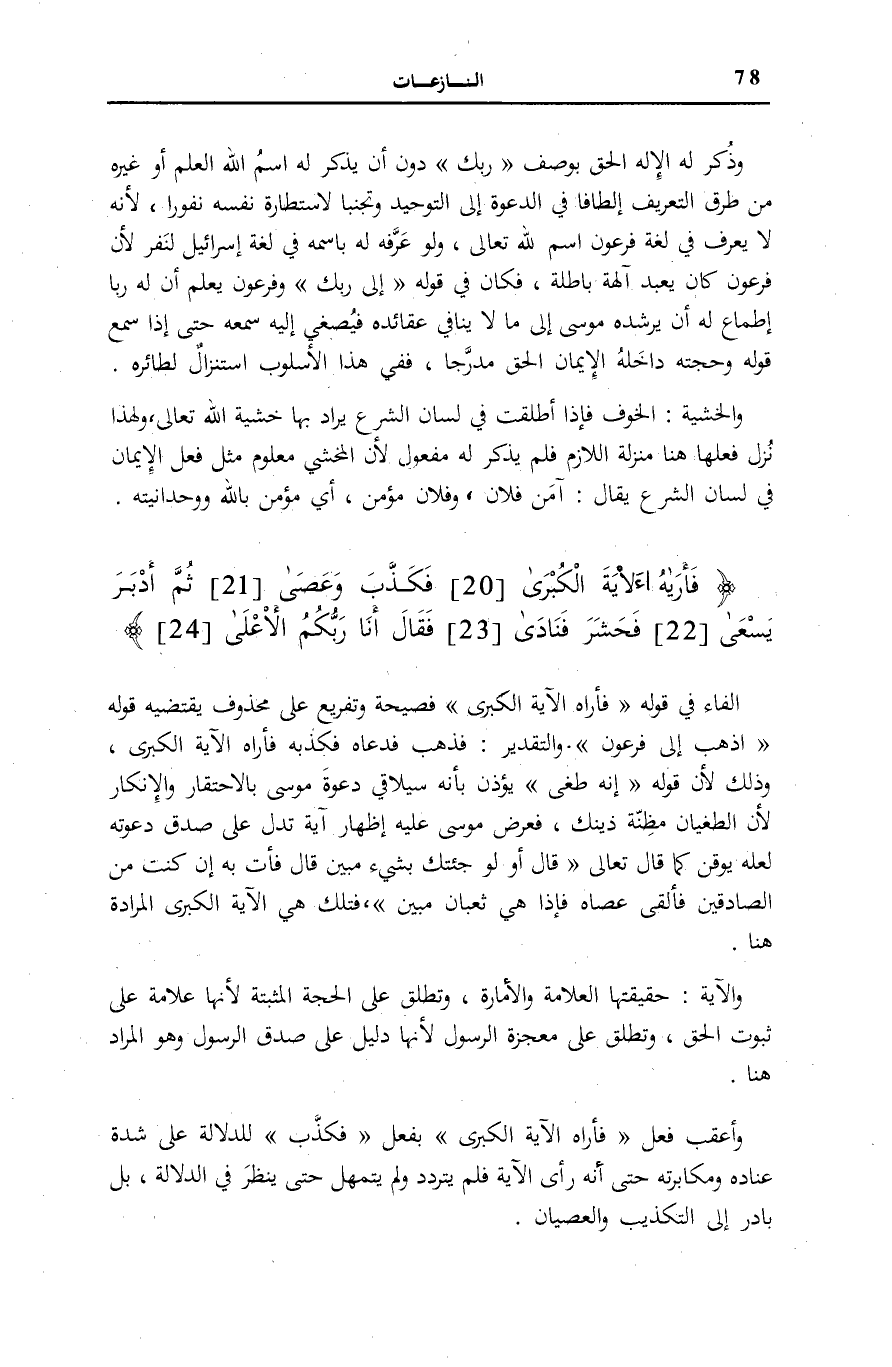 78
النـــازعـــات
وذُكر له الإله الحق بوصف « ربك » دون أن يذكر له اسمُ الله العلم أو غيره
من طرق التعريف إلطافا في الدعوة إلى التوحيد وتجنبا لاستطارة نفسه نفورا ، لأنه
لا يعرف في لغة فرعون اسم لله تعالى ، ولو عَرَّفه له باسمه في لغة إسرائيل لنَفر لأن
فرعون كان يعبد آلهة باطلة ، فكان في قوله « إلى ربك » وفرعون يعلم أن له ربا
إطماع له أن يرشده موسى إلى ما لا ينافي عقائده فيُصغي إليه سمعه حتى إذا سمع
قوله وحجته داخَلهُ الإيمان الحق مدرَّجا ، ففي هذا الأسلوب استنزالٌ لطائره .
والخشية : الخوف فإذا أطلقت في لسان الشرع يراد بها خشية الله تعالى،ولهذا
نُزل فعلها هنا منزلة اللازم فلم يذكر له مفعول لأن المخشي معلوم مثل فعل الإيمان
في لسان الشرع يقال : آمَن فلان ، وفلان مؤمن ، أي مؤمن بالله ووحدانيته .
﴿ فَأَرَيٰهُ اءَلاْيَةَ الْكُبْرَىٰ [20] فَكَـذَّبَ وَعَصَىٰ [21] ثُمَّ أَدْبَـرَ
يَسْعَىٰ [22] فَحَشَرَ فَنَادَىٰ [23] فَقَالَ أَنَا رَبُّكُمُ الْأَعْلَىٰ [24] ﴾
الفاء في قوله « فأراه الآية الكبرى » فصيحة وتفريع على محذوف يقتضيه قوله
« اذهب إلى فرعون ».والتقدير : فذهب فدعاه فكذبه فأراه الآية الكبرى ،
وذلك لأن قوله « إنه طغى » يؤذن بأنه سيلاقي دعوةَ موسى بالاحتقار والإنكار
لأن الطغيان مظِنّة ذينك ، فعرض موسى عليه إظهار آية تدل على صدق دعوته
لعله يوقن كما قال تعالى « قال أو لو جئتك بشيء مبين قال فأت به إن كنت من
الصادقين فألقى عصاه فإذا هي ثعبان مبين »،فتلك هي الآية الكبرى المرادة
هنا .
والآية : حقيقتها العلامة والأمارة ، وتطلق على الحجة المثبتة لأنها علامة على
ثبوت الحق ، وتطلق على معجزة الرسول لأنها دليل على صدق الرسول وهو المراد
هنا .
وأعقب فعل « فأراه الآية الكبرى » بفعل « فكذَّب » للدلالة على شدة
عناده ومكابرته حتى أنه رأى الآية فلم يتردد ولم يتمهل حتى ينظرَ في الدلالة ، بل
بادر إلى التكذيب والعصيان .